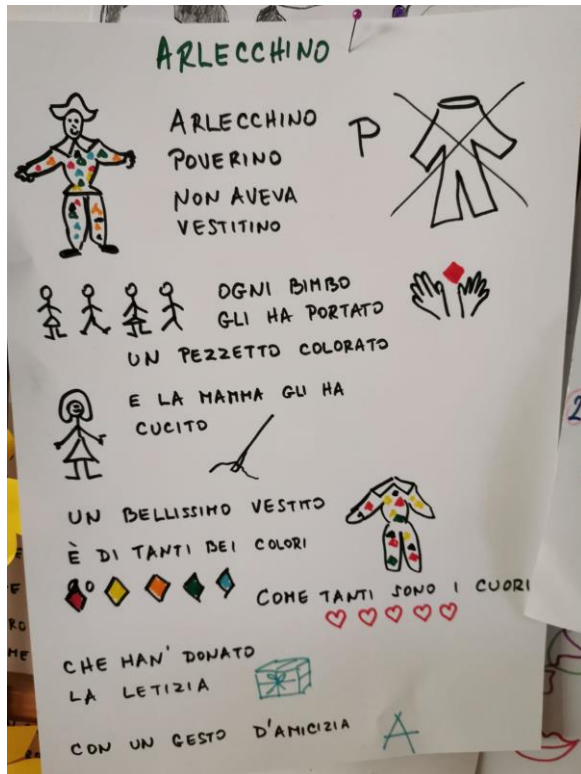 ARLECCHINO
ARLECCHINO
POVERINO
NON AVEVA
VESTITINO
P
OGNI BIMBO
GLI HA PORTATO
UN PEZZETTO COLORATO
E LA MAMMA GLI HA
CUCITO
UN BELLISSIMO VESTITO
È DI TANTI BEI COLORI
COME TANTI SONO I CUORI
CHE HAN' DONATO
LA LETIZIA
CON UN GESTO D'AMICIZIA
A
2